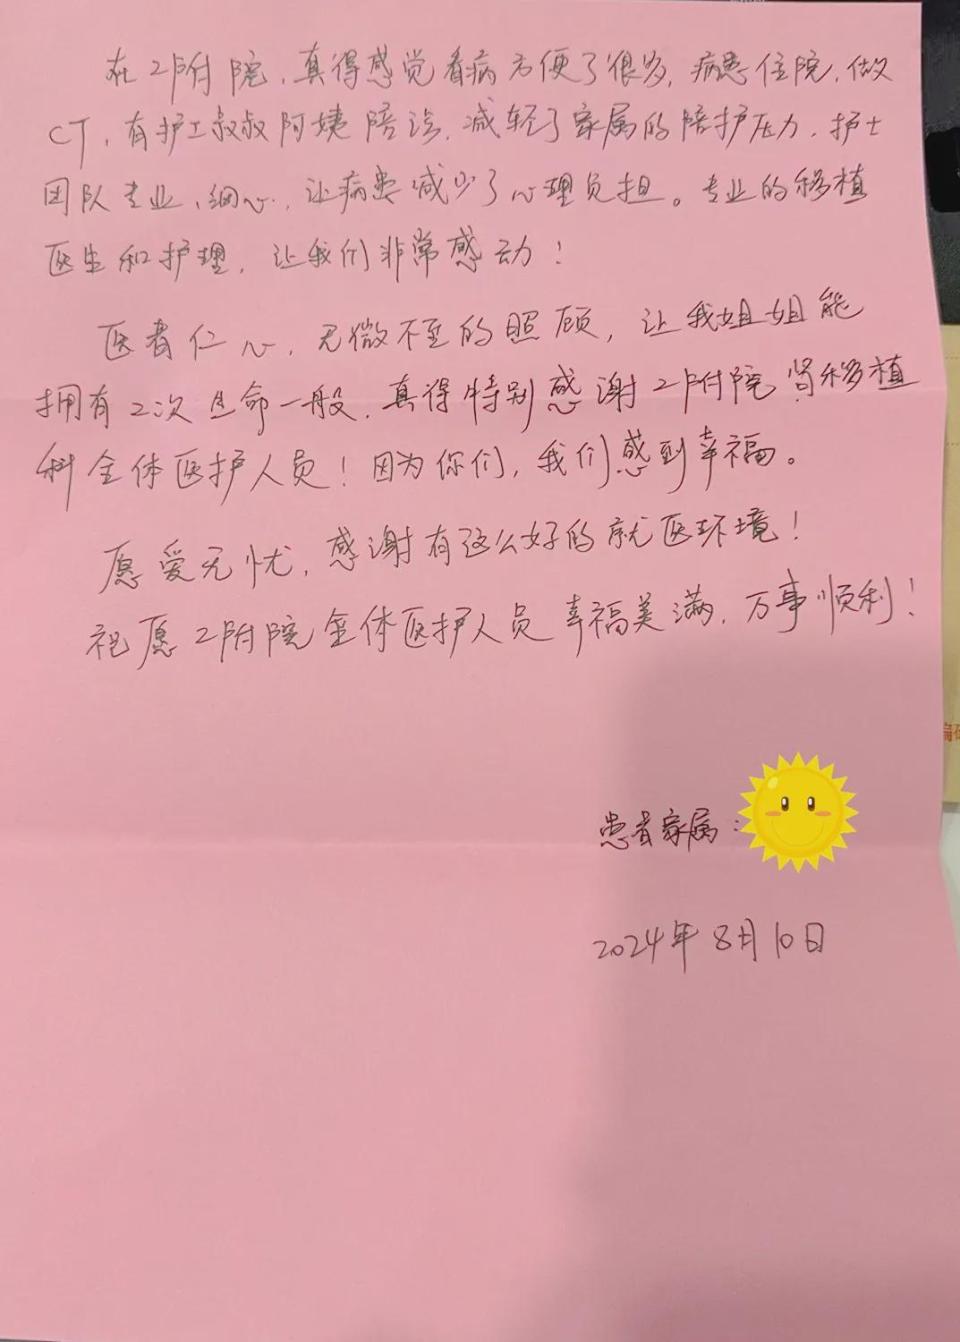 在2附院，真得感觉看病方便了很多，病患住院，做
CT，有护工叔叔阿姨陪诊，减轻了家属的陪护压力，护士
团队专业、细心，让病患减少了心理负担。专业的移植
医生和护理，让我们非常感动！
医者仁心，无微不至的照顾，让我姐姐能
拥有2次生命一般，真得特别感谢2附院肾移植
科全体医护人员！因为你们，我们感到幸福。
愿爱无忧，感谢有这么好的就医环境！
祝愿2附院全体医护人员幸福美满，万事顺利！
患者家属：
2024年8月10日